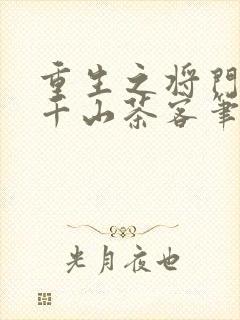 重生之将门
千山茶客笔
光月夜也